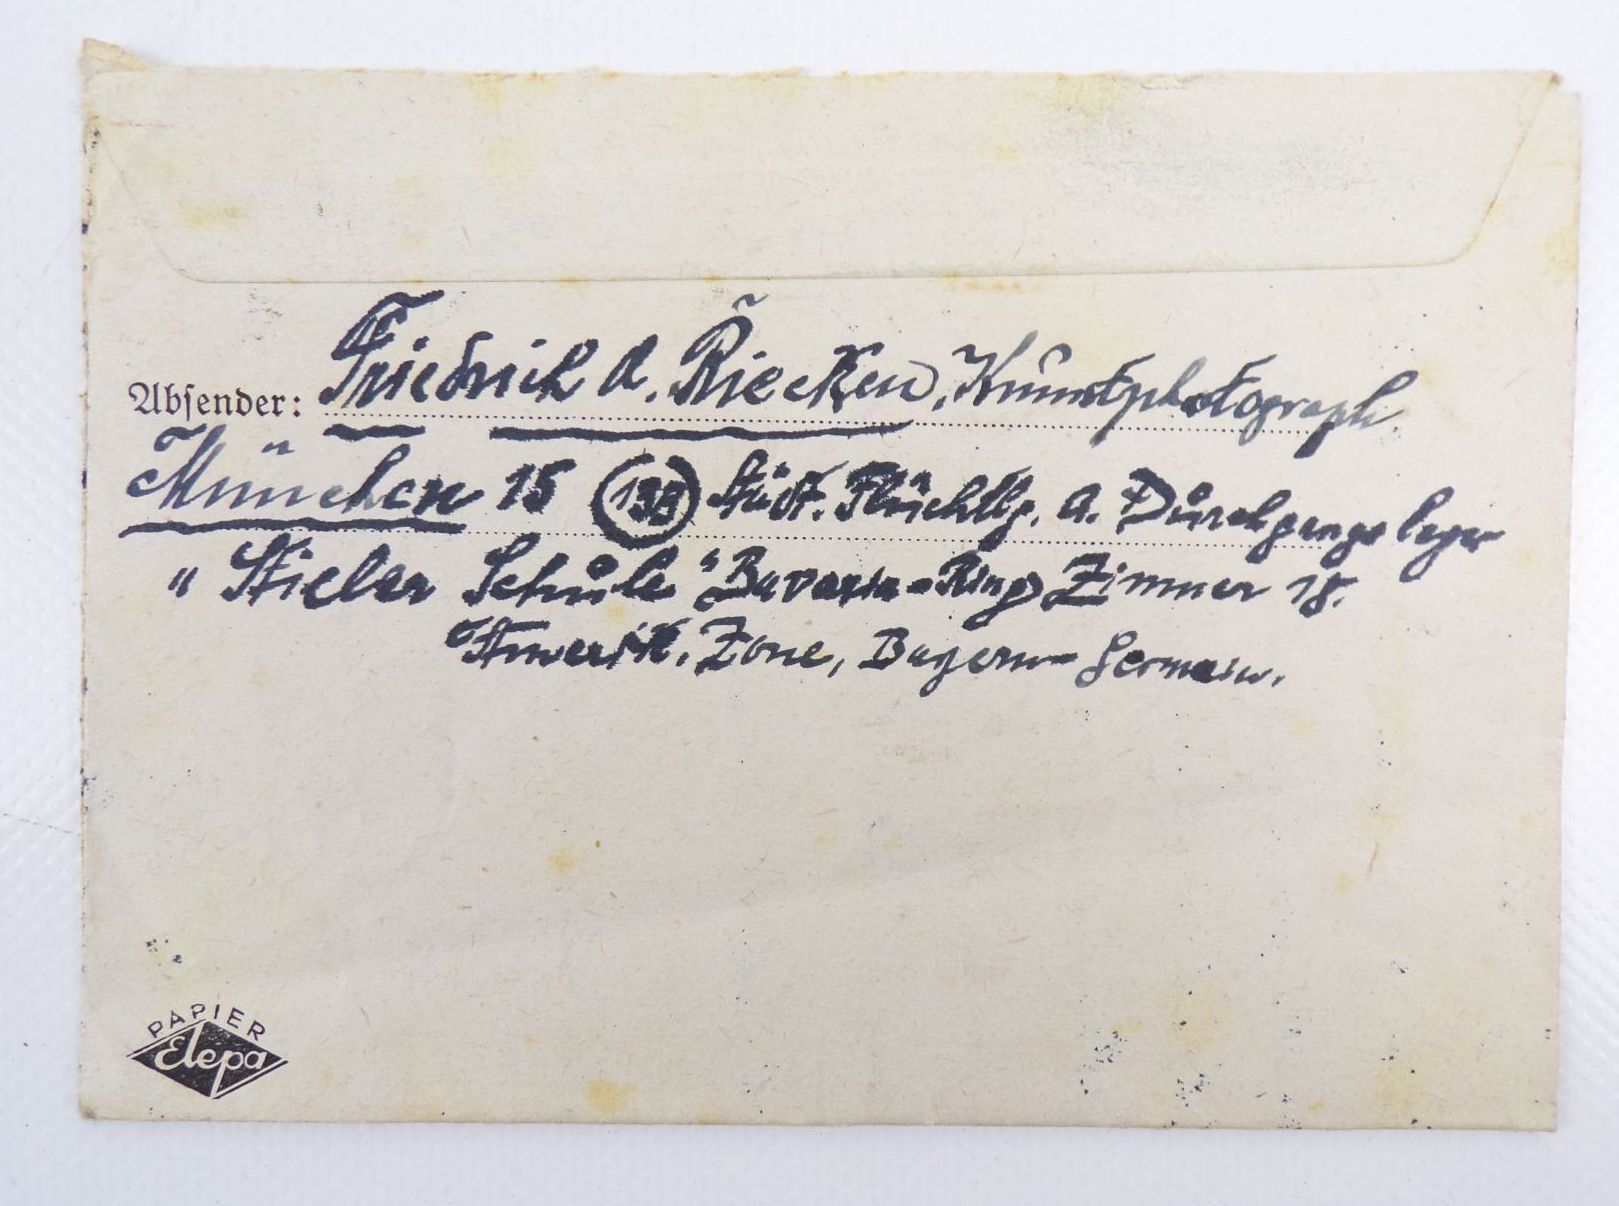 Absender: Friedrich A. Riecken, Kunstphotograph
München 15 (13B) Städt. Flüchtlg. A. Durchgangslager
"Stieler Schule" Bavaria-Ring Zimmer 18.
Amerik. Zone, Bayern-German.
PAPIER
Elepa